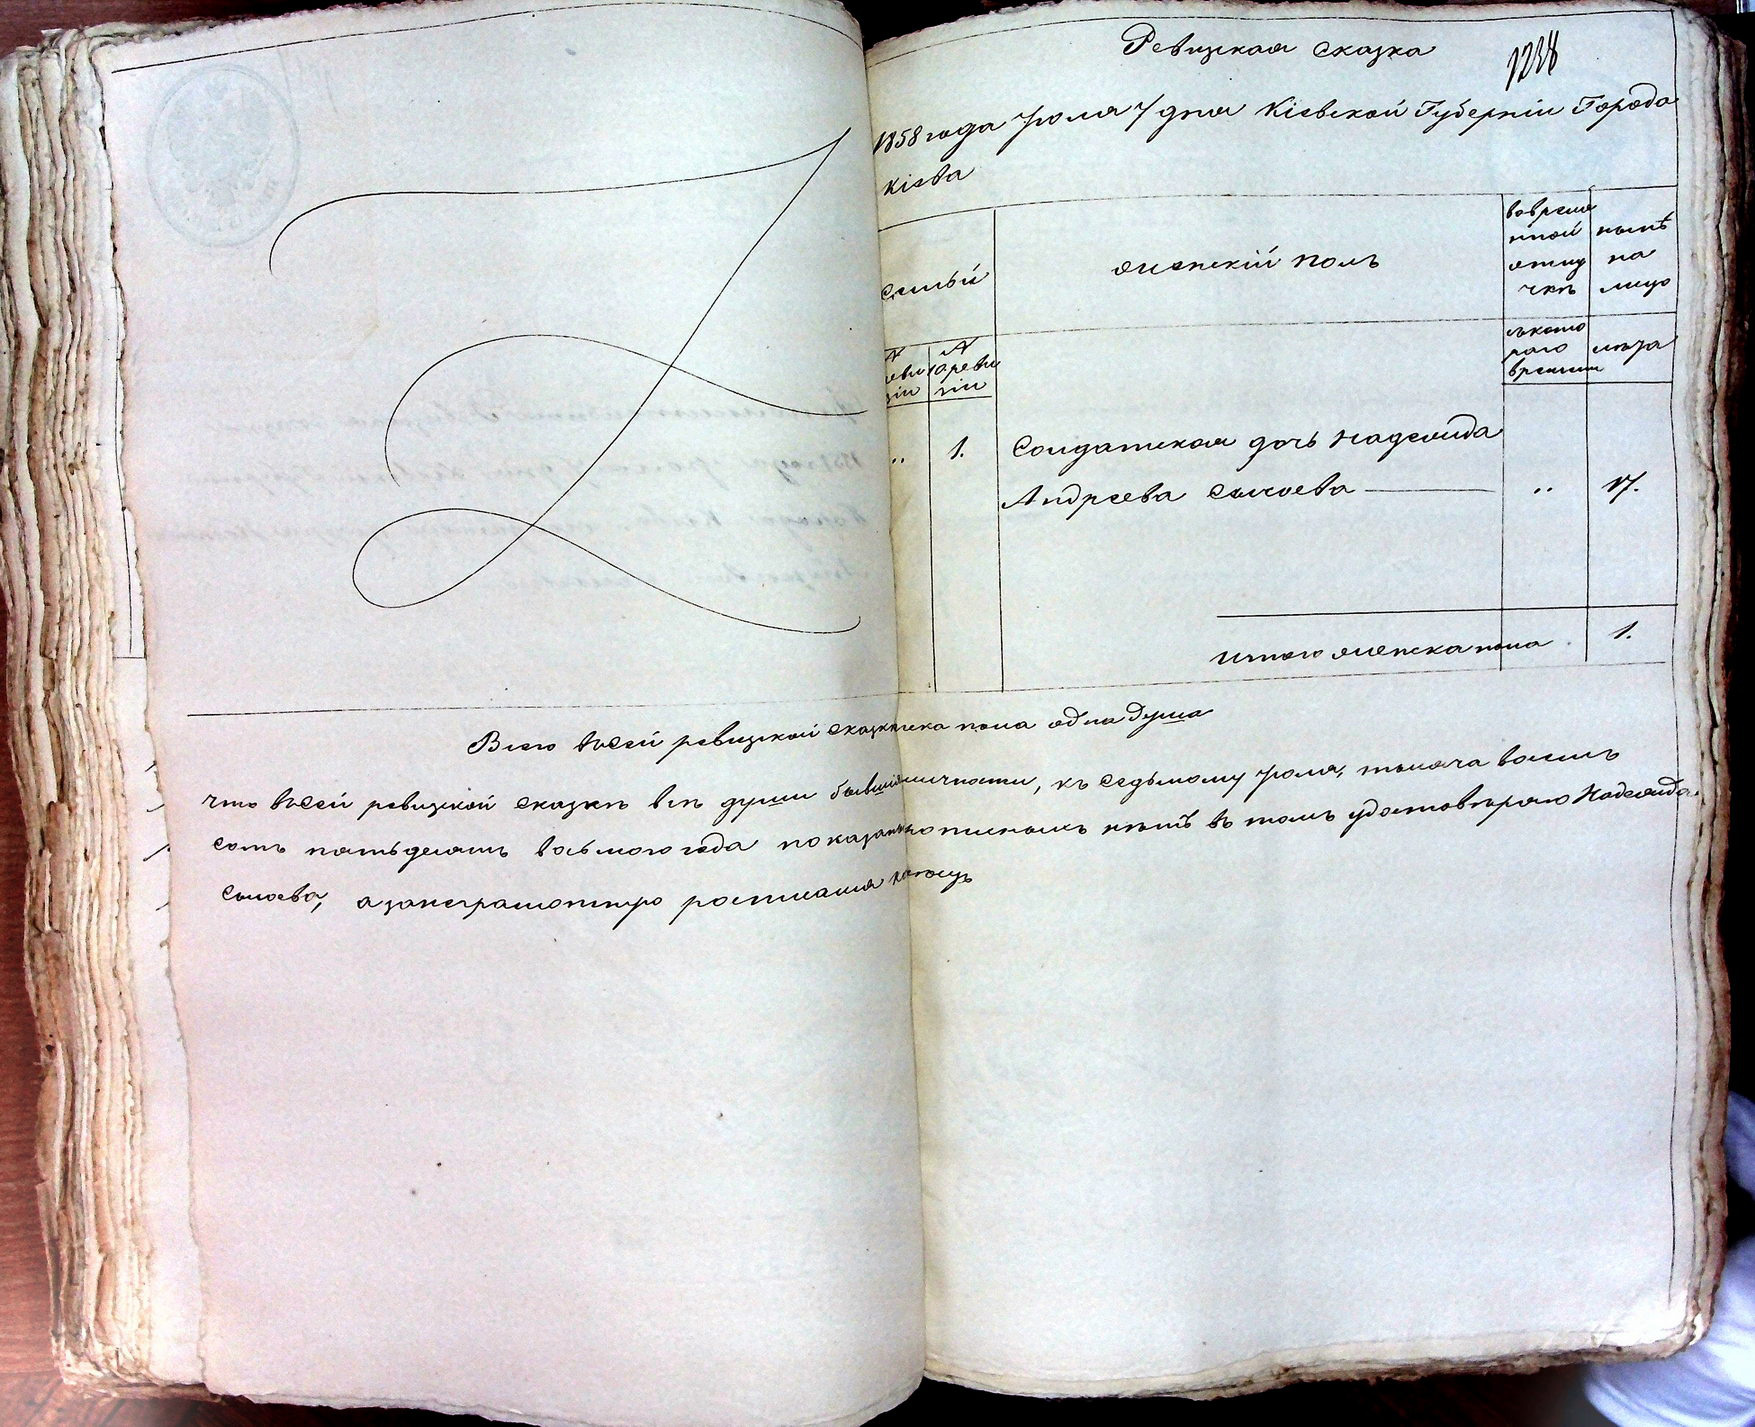 Ревизская сказка
1238
1858 года Іюля 7 дня Кіевской Губерніи Города
Кіева
семьи
женскій полъ
во време
нной
отлу
чкѣ
нынѣ
на
лицо
съ кото
раго
времени
лѣта
№
реви
зіи
№
10 реви
зіи
„
1.
Солдатская дочь Надежда
Андреева Сысоева
„
17.
Итого женска пола
1.
Всего въ сей ревизской сказкѣ женска пола одна душа
что въ сей ревизской сказкѣ всѣ души бывшія въ наличности, къ седьмому Іюля, тысяча восемь
сотъ пятьдесятъ восьмого года показаны и прописныхъ нѣтъ въ томъ удостовѣряю Надежда
Сысоева, а за неграмотную росписался